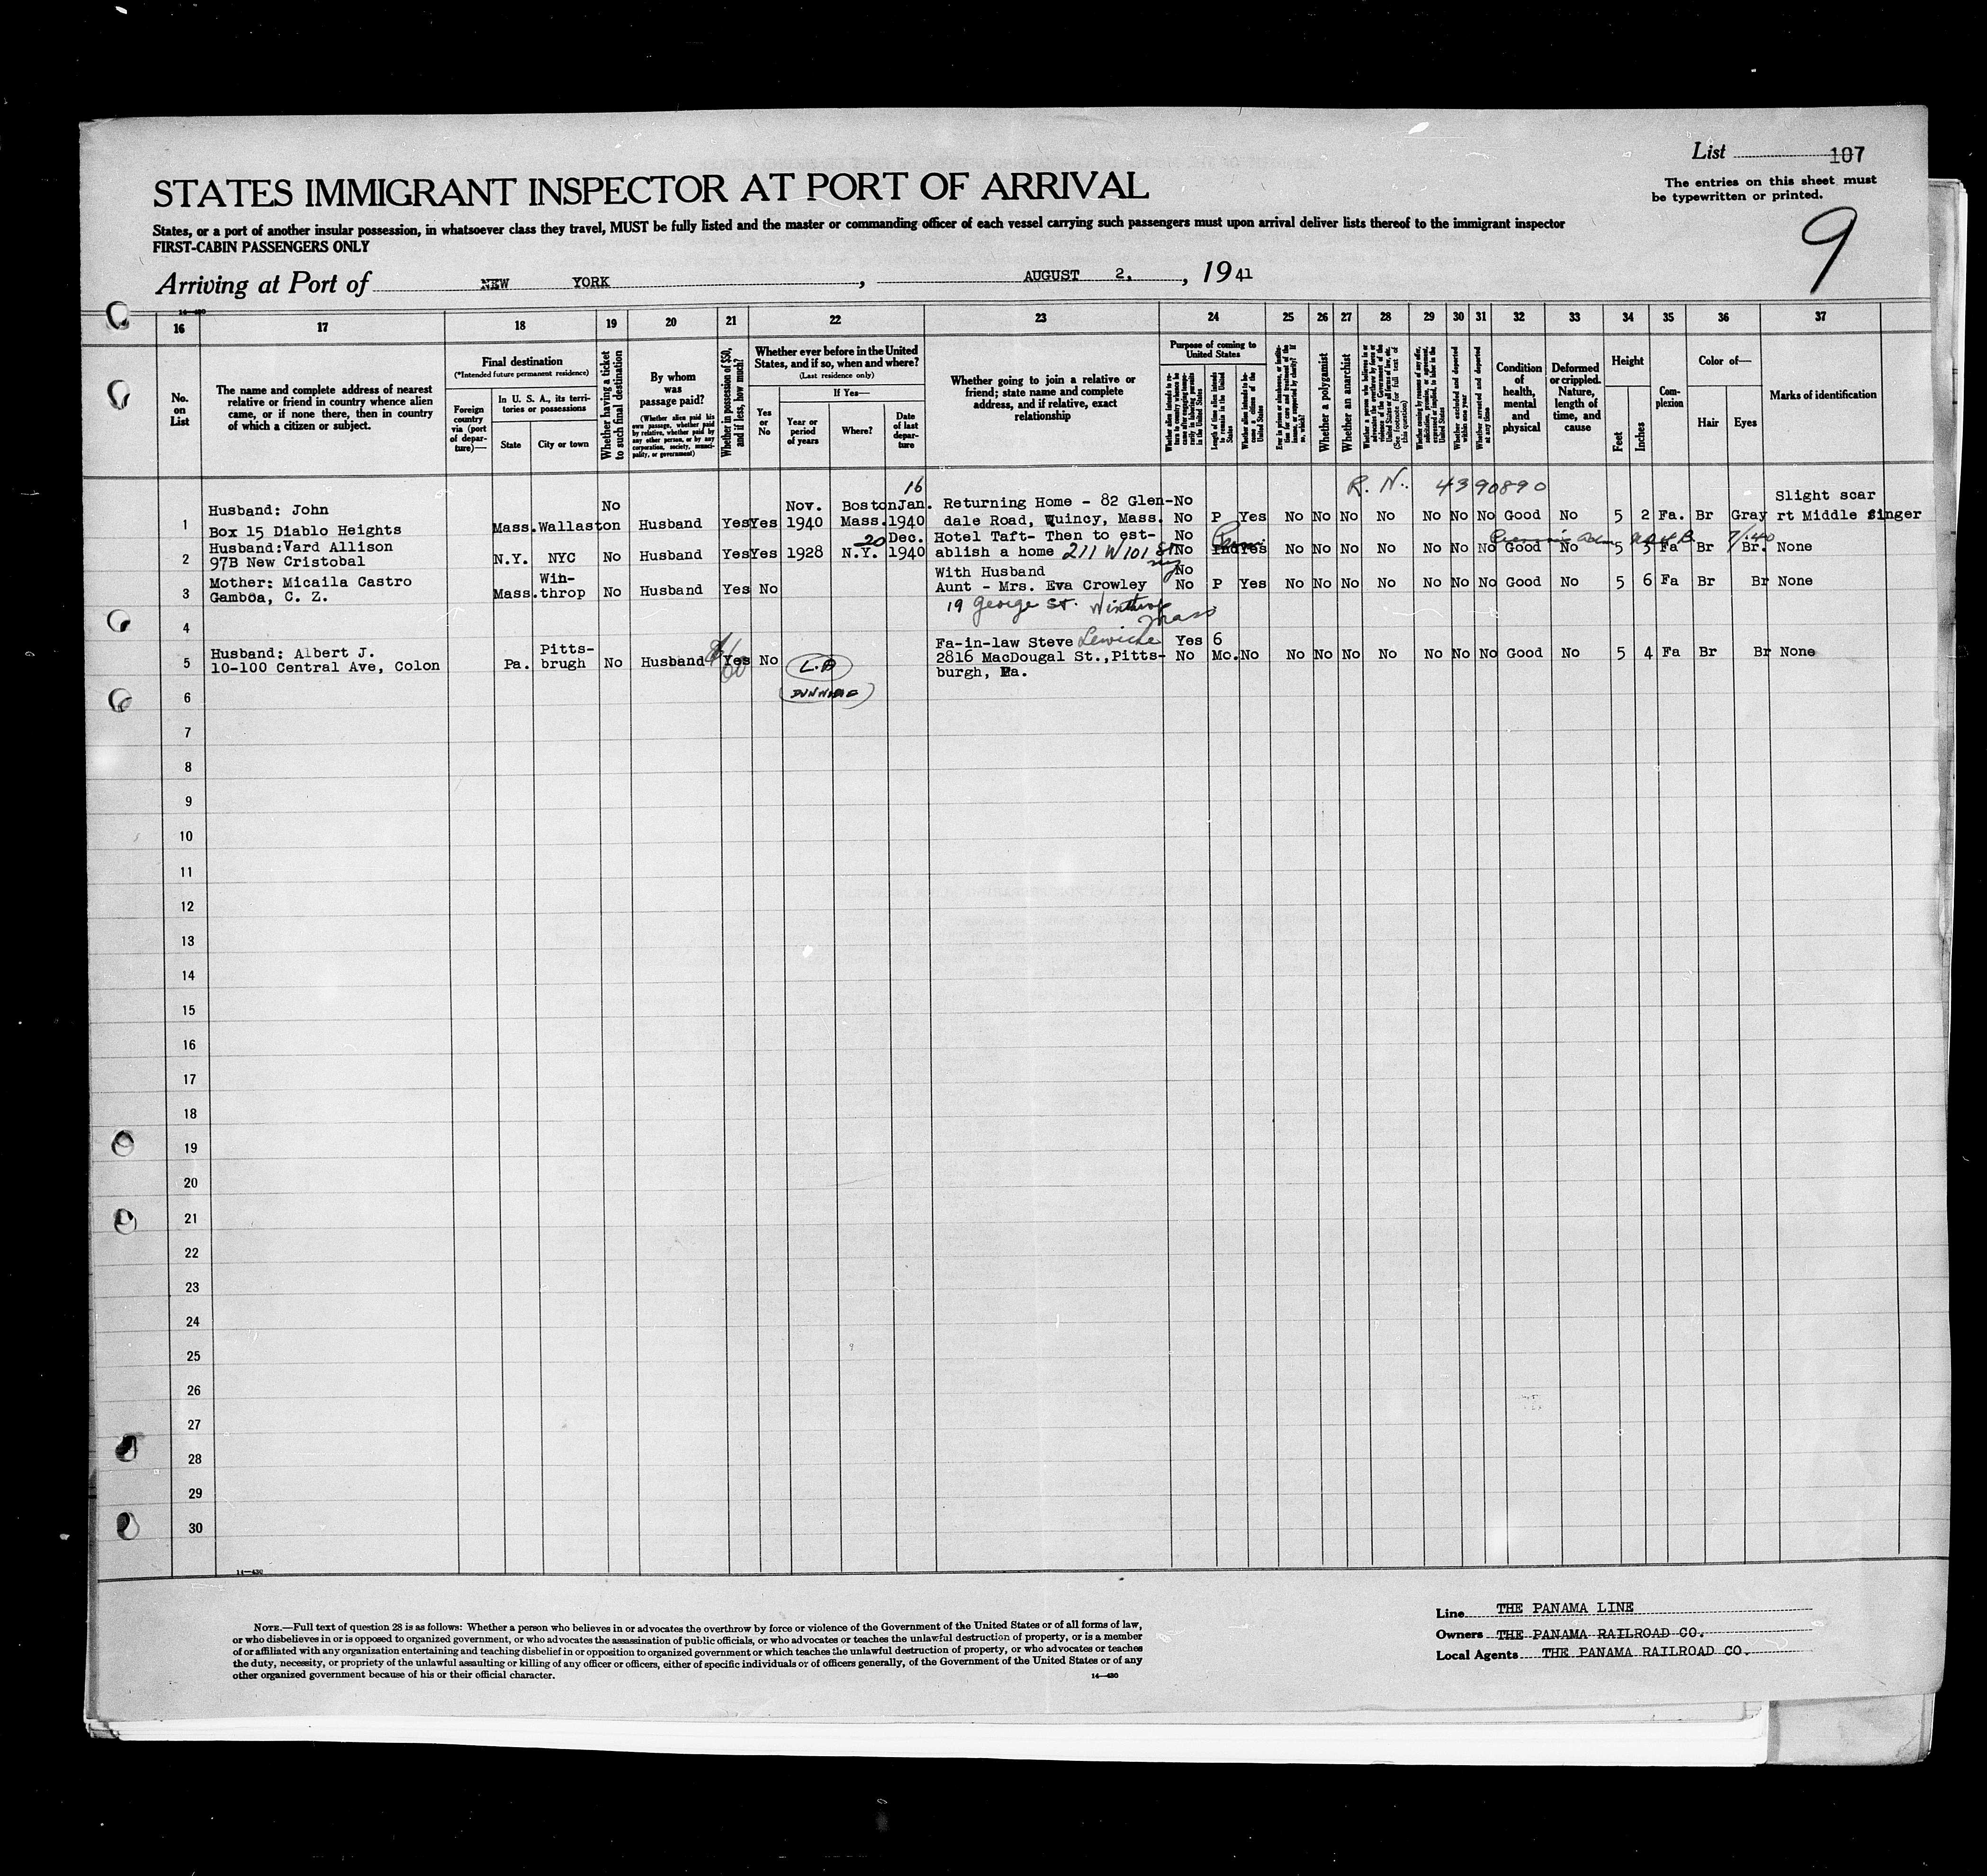 List 107
The entries on this sheet must
be typewritten or printed.
9
STATES IMMIGRANT INSPECTOR AT PORT OF ARRIVAL
States, or a port of another insular possession, in whatsoever class they travel, MUST be fully listed and the master or commanding officer of each vessel carrying such passengers must upon arrival deliver lists thereof to the immigrant inspector
FIRST-CABIN PASSENGERS ONLY
Arriving at Port of NEW YORK, AUGUST 2, 1941
14-430
16 17 18 19 20 21 22 23 24 25 26 27 28 29 30 31 32 33 34 35 36 37
No. on List
The name and complete address of nearest relative or friend in country whence alien came, or if none there, then in country of which a citizen or subject.
Final destination
(*Intended future permanent residence)
Foreign country via (port of departure)—
In U. S. A., its territories or possessions
State
City or town
Whether having a ticket to such final destination
By whom was passage paid?
(Whether alien paid his own passage, whether paid by relative, whether paid by any other person, or by any corporation, society, municipality, or government)
Whether in possession of $50, and if less, how much?
Whether ever before in the United States, and if so, when and where?
(Last residence only)
Yes or No
If Yes—
Year or period of years
Where?
Date of last departure
Whether going to join a relative or friend; state name and complete address, and if relative, exact relationship
Purpose of coming to United States
Length of time alien intends to remain in the United States
Whether alien intends to become a citizen of the United States
Whether a polygamist
Whether an anarchist
(See footnote for full text of this question)
Whether arrested and deported at any time
Condition of health, mental and physical
Deformed or crippled. Nature, length of time, and cause
Height
Feet
Inches
Complexion
Color of—
Hair
Eyes
Marks of identification
16
R. N. 4390890
Husband: John No Nov. Boston Jan. Returning Home - 82 Glen- No Slight scar
1 Box 15 Diablo Heights Mass. Wallaston Husband Yes Yes 1940 Mass. 1940 dale Road, Quincy, Mass. No P Yes No No No No No No No Good No 5 2 Fa. Br Gray rt Middle finger
Husband: Vard Allison 20 Dec. Hotel Taft- Then to est- No
2 97B New Cristobal N.Y. NYC No Husband Yes Yes 1928 N.Y. 1940 ablish a home 211 W 101 St No Ind Yes No No No No No No No Good No 5 3 Fa Br Br. None
Mother: Micaila Castro Win- With Husband No
3 Gamboa, C. Z. Mass. throp No Husband Yes No Aunt - Mrs. Eva Crowley No P Yes No No No No No No No Good No 5 6 Fa Br Br None
4 19 George St. Winthrop Mass
Husband: Albert J. Pitts- Fa-in-law Steve Lewicke Yes 6
5 10-100 Central Ave, Colon Pa. brugh No Husband Yes No L.D 2816 MacDougal St., Pitts- No Mo. No No No No No No No No Good No 5 4 Fa Br Br None
burgh, Pa.
6
7
8
9
10
11
12
13
14
15
16
17
18
19
20
21
22
23
24
25
26
27
28
29
30
14-430
NOTE.—Full text of question 28 is as follows: Whether a person who believes in or advocates the overthrow by force or violence of the Government of the United States or of all forms of law,
or who disbelieves in or is opposed to organized government, or who advocates the assassination of public officials, or who advocates or teaches the unlawful destruction of property, or is a member
of or affiliated with any organization entertaining and teaching disbelief in or opposition to organized government or which teaches the unlawful destruction of property, or who advocates or teaches
the duty, necessity, or propriety of the unlawful assaulting or killing of any officer or officers, either of specific individuals or of officers generally, of the Government of the United States or of any
other organized government because of his or their official character.
14-430
Line THE PANAMA LINE
Owners THE PANAMA RAILROAD CO.
Local Agents THE PANAMA RAILROAD CO.